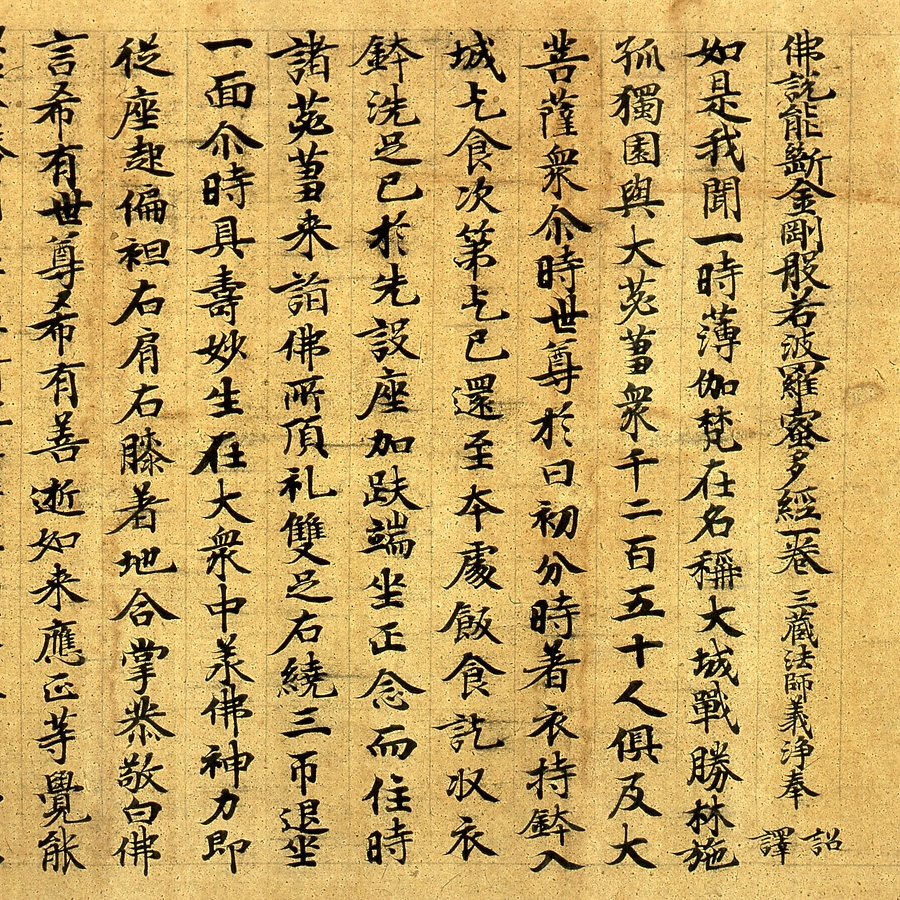 佛説能斷金剛般若波羅蜜多經一卷 三藏法師義淨奉 詔譯
如是我聞一時薄伽梵在名稱大城戰勝林施
孤獨園與大苾蒭衆千二百五十人俱及大
菩薩衆尒時世尊於日初分時著衣持鉢入
城乞食次第乞已還至本處飯食訖収衣
鉢洗足已於先設座加趺端坐正念而住時
諸苾蒭来詣佛所頂礼雙足右繞三帀退坐
一面尒時具壽妙生在大衆中承佛神力即
従座起偏袒右肩右膝著地合掌恭敬白佛
言希有世尊希有善逝如来應正等覺能